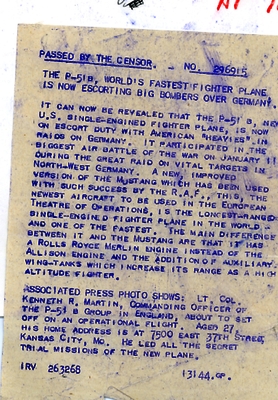 PASSED BY THE CENSOR. - NO. 296915
THE P-51 B, WORLD'S FASTEST FIGHTER PLANE,
IS NOW ESCORTING BIG BOMBERS OVER GERMANY
IT CAN NOW BE REVEALED THAT THE P-51 B, NEW
U.S. SINGLE-ENGINED FIGHTER PLANE, IS NOW
ON ESCORT DUTY WITH AMERICAN "HEAVIES" IN
RAIDS ON GERMANY. IT PARTICIPATED IN THE
BIGGEST AIR BATTLE OF THE WAR ON JANUARY
DURING THE GREAT RAID ON VITAL TARGETS IN
NORTH-WEST GERMANY. A NEW, IMPROVED
VERSION OF THE MUSTANG WHICH HAS BEEN USED
WITH SUCH SUCCESS BY THE R.A.F., THIS, THE
NEWEST AIRCRAFT TO BE USED IN THE EUROPEAN
THEATRE OF OPERATIONS, IS THE LONGEST-RANGED
SINGLE-ENGINED FIGHTER PLANE IN THE WORLD -
AND ONE OF THE FASTEST. THE MAIN DIFFERENCE
BETWEEN IT AND THE MUSTANG ARE THAT IT HAS
A ROLLS ROYCE MERLIN ENGINE INSTEAD OF THE
ALLISON ENGINE AND THE ADDITION OF AUXILIARY
WING-TANKS WHICH INCREASE ITS RANGE AS A HIGH
ALTITUDE FIGHTER.
ASSOCIATED PRESS PHOTO SHOWS: LT. COL.
KENNETH R. MARTIN, COMMANDING OFFICER OF
THE P-51 B GROUP IN ENGLAND, ABOUT TO SET
OFF ON AN OPERATIONAL FLIGHT. AGED 27,
HIS HOME ADDRESS IS AT 7500 EAST 37TH STREET,
KANSAS CITY, MO. HE LED ALL THE SECRET
TRIAL MISSIONS OF THE NEW PLANE.
IRV 263268 13144.GP.